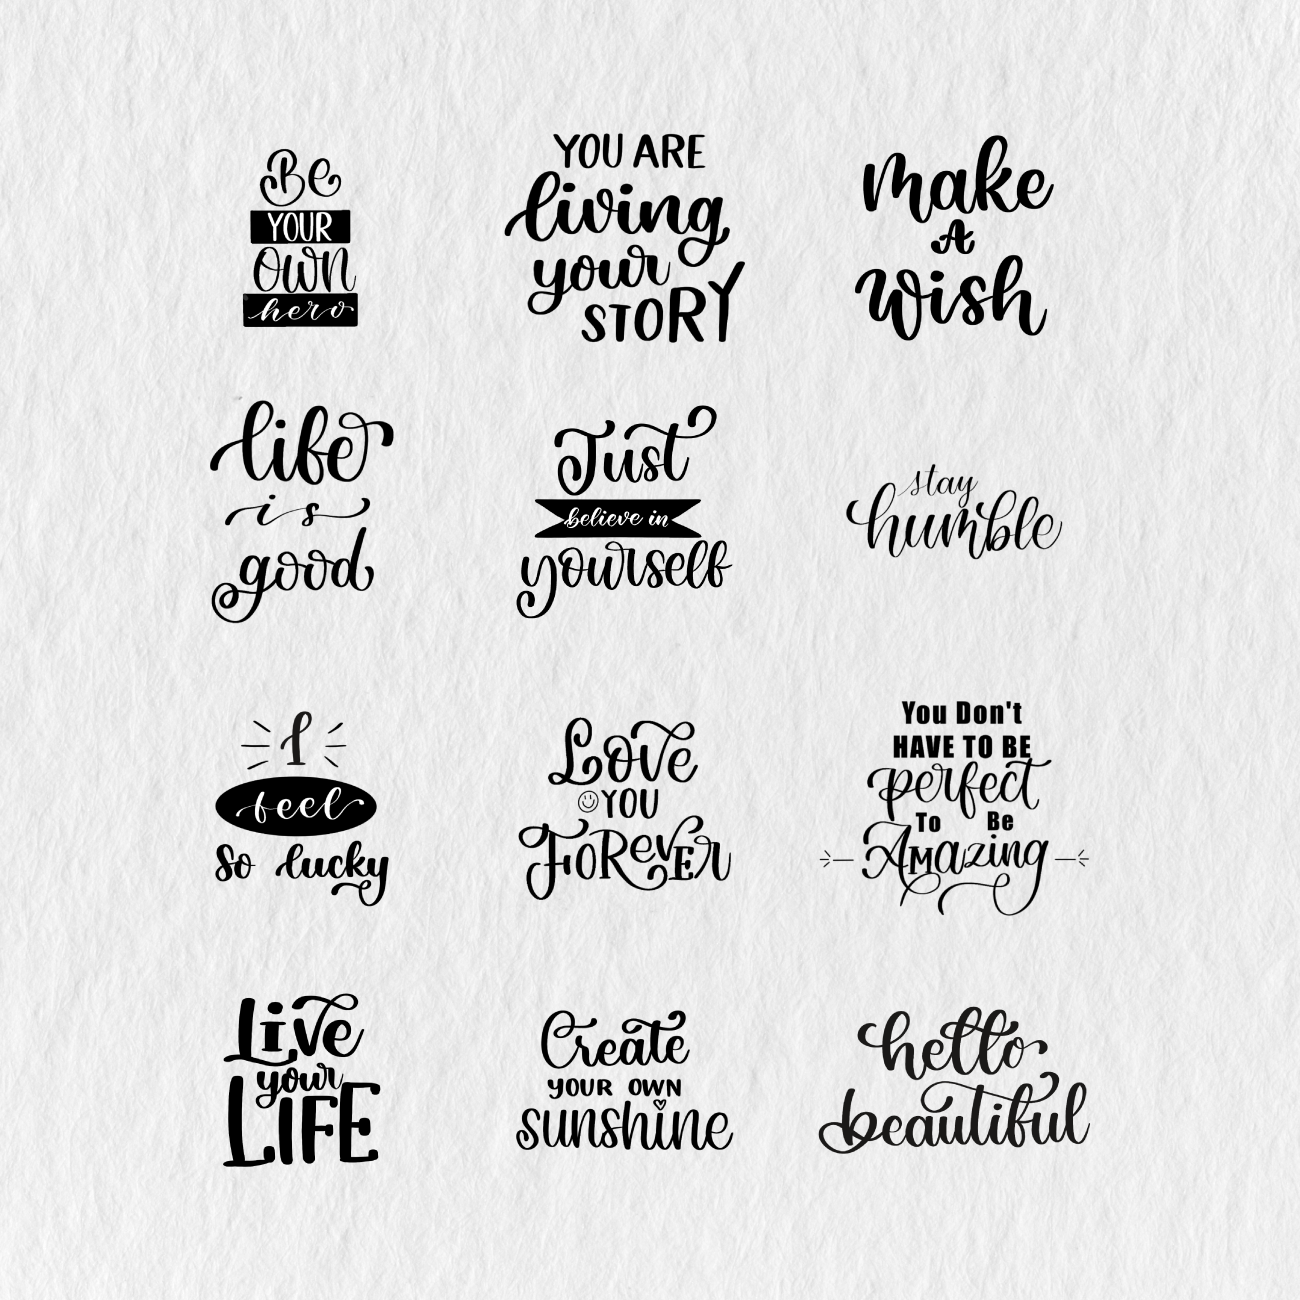 Be
YOUR
OWN
hero
YOU ARE
living
your
STORY
make
A
Wish
life
is
good
Just
believe in
yourself
stay
humble
I
feel
So lucky
Love
YOU
FOReVER
You Don't
HAVE TO BE
perfect
To Be
AMazing
Live
your
LIFE
Create
YOUR OWN
sunshine
hello
beautiful